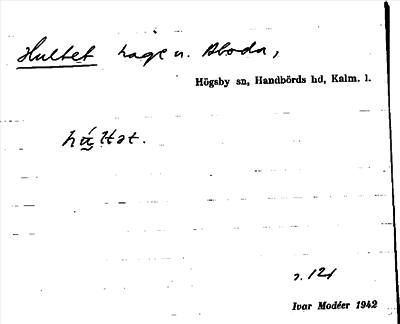 Hultet hage n. Aboda,
Högsby sn, Handbörds hd, Kalm. l.
hú̬ltət.
s. 121
Ivar Modéer 1942